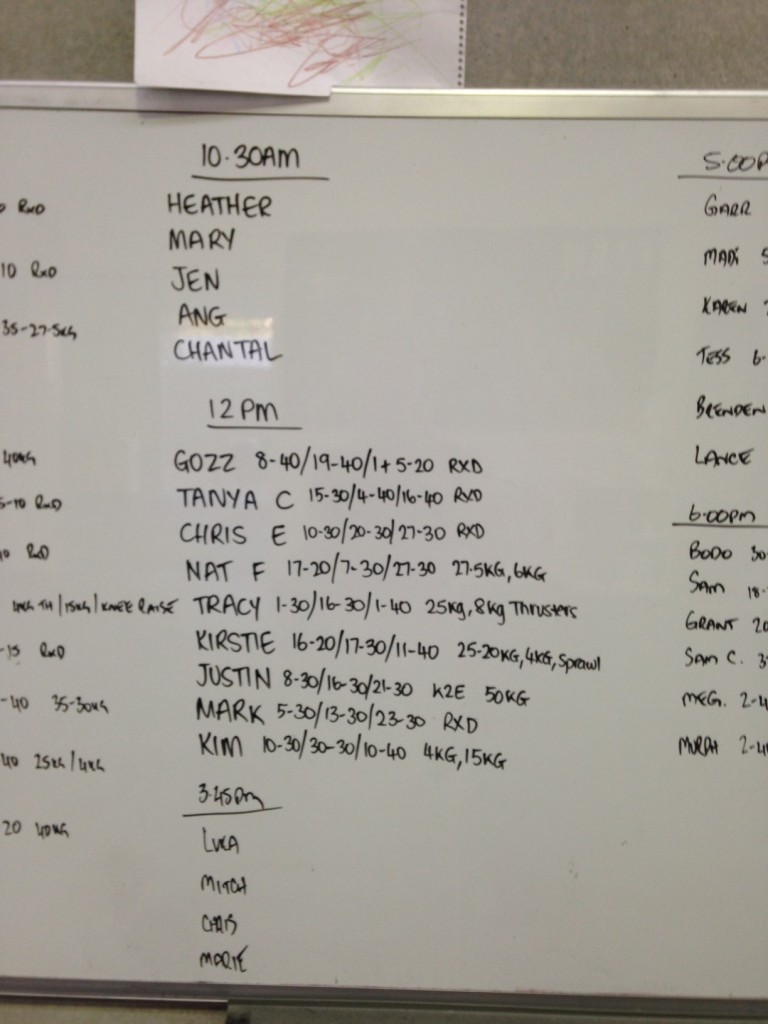 RXD
10 RXD
35-27.5KG
40KG
5-10 RXD
RXD
4KG TH/15KG/KNEE RAISE
-15 RXD
-40 35-30KG
40 25KG/4KG
20 40KG
10.30AM
HEATHER
MARY
JEN
ANG
CHANTAL
12PM
GOZZ 8-40/19-40/1+5-20 RXD
TANYA C 15-30/4-40/16-40 RXD
CHRIS E 10-30/20-30/27-30 RXD
NAT F 17-20/7-30/27-30 27.5KG, 6KG
TRACY 1-30/16-30/1-40 25Kg, 8kg Thrusters
KIRSTIE 16-20/17-30/11-40 25-20KG, 4KG, Sprawl
JUSTIN 8-30/16-30/21-30 K2E 50KG
MARK 5-30/13-30/23-30 RXD
KIM 10-30/30-30/10-40 4KG, 15KG
3.45pm
LUCA
MITCH
CHRIS
MARIE
5.00P
GARR
MADI
KAREN
TESS 6-
BRENDEN
LANCE
6.00pm
BODO 30
SAM 18-
GRANT 20
SAM C. 3
MEG. 2-4
MURPH 2-4